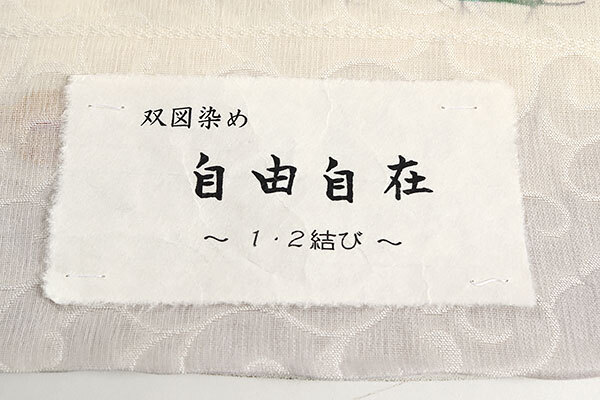 双図染め
自由自在
～ 1・2結び ～